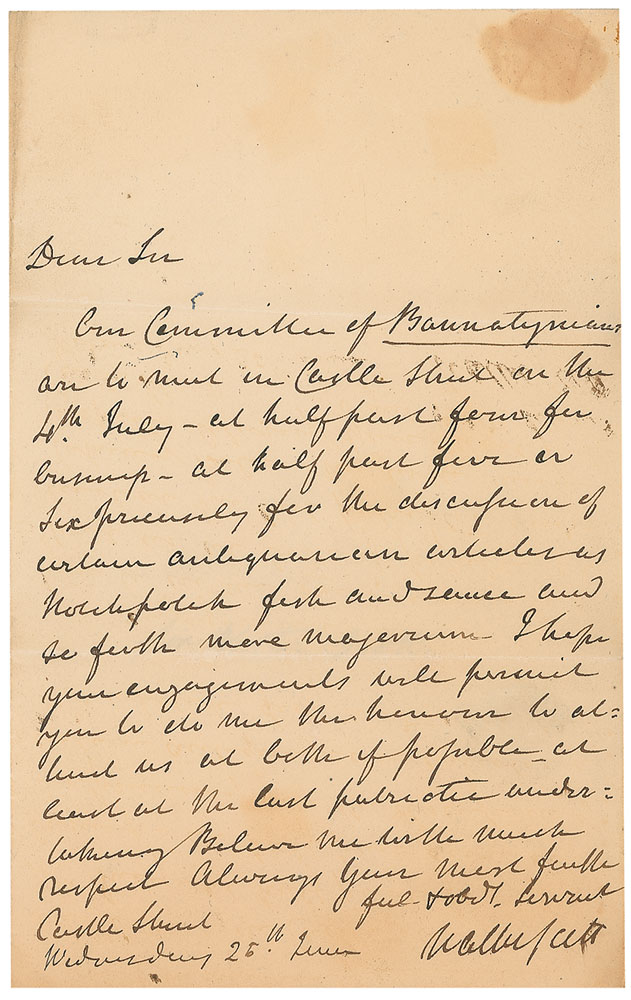 Dear Sir
Our Committee of Bannatynians
are to meet in Castle Street on the
4th July – at half past four for
business – at half past five or
Six precisely for the discussion of
certain antiquarian articles as
Hotchpotch fish and sauce and
so forth more majorum – I hope
your engagements will permit
you to do me the honour to at=
tend us at both if possible at
least at the last patriotic under=
taking Believe me with much
respect Always Your most faith
ful & obdt. servant
Castle Street
Wednesday 25th June
Walter Scott